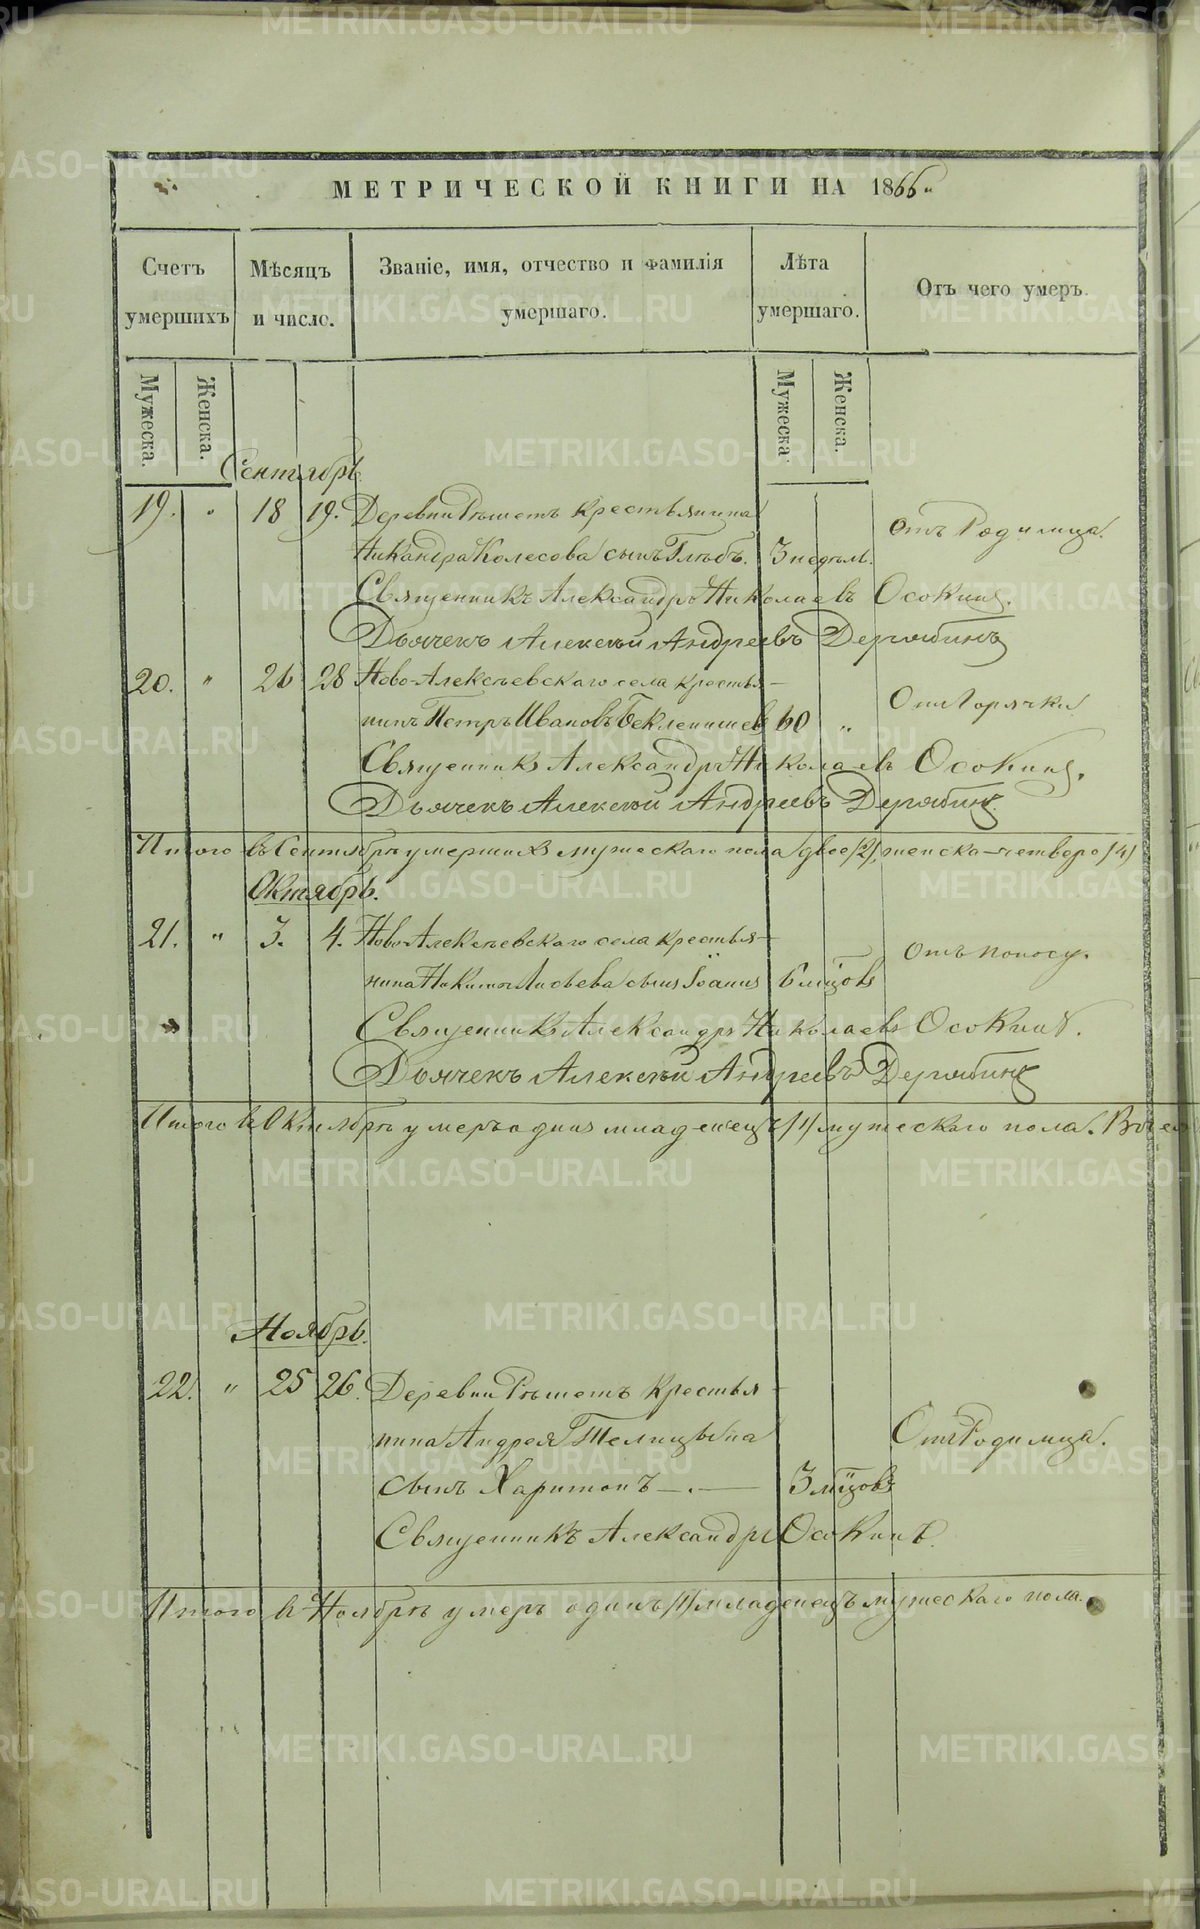 МЕТРИЧЕСКОЙ КНИГИ НА 1866й
Счетъ умершихъ
Мѣсяцъ и число.
Званіе, имя, отчество и фамилія умершаго.
Лѣта умершаго.
Отъ чего умеръ.
Мужеска.
Женска.
Мужеска
Женска.
Сентябрь.
19. " 18 19. Деревни Рѣшетъ крестьянина
Никандра Колесова сынъ Глѣбъ. 3 недѣль. отъ Родимца.
Священникъ Александръ Николаевъ Осокинъ.
Дьячекъ Алексѣй Андреевъ Дерябинъ
20. " 26 28 Ново-Алексѣевскаго села крестья-
нинъ Петръ Ивановъ Беклемишев 60 " Отъ Горячки
Священникъ Александръ Николаевъ Осокинъ.
Дьячекъ Алексѣй Андреевъ Дерябинъ.
Итого въ Сентябрѣ умершихъ мужескаго пола двое /2/, женска-четверо /4/
Октябрь.
21. " 3. 4. Ново-Алексѣевскаго села крестья-
нина Никиты сынъ Іоаннъ 6 мцовъ отъ поносу.
Священникъ Александръ Николаевъ Осокинъ.
Дьячекъ Алексѣй Андреевъ Дерябинъ
Итого въ Октябрѣ умеръ одинъ младенецъ /1/ мужескаго пола.
Ноябрь.
22. " 25 26. Деревни Рѣшетъ крестья-
нина Андрея Телицына Отъ Родимца.
сынъ Харитонъ 3 мцовъ
Священникъ Александръ Осокинъ.
Итого въ Ноябрѣ умеръ одинъ /1/ младенецъ мужескаго пола.
METRIKI.GASO-URAL.RU